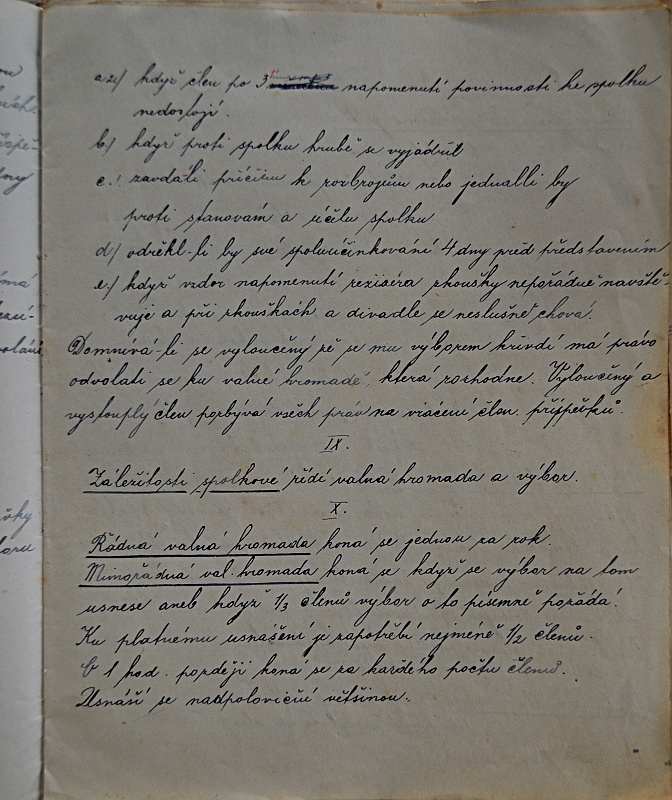 a) když člen po 3 napomenutí povinnosti ke spolku
nedostojí.
b) když proti spolku hrubě se vyjádřil
c.) zavdá-li příčinu k rozbrojům nebo jednalli by
proti stanovám a účelu spolku
d) odřekl-li by své spoluúčinkování 4 dny před představením
e) když vzdor napomenutí režiséra zkoušky nepořádně navště-
vuje a při zkouškách a divadle se neslušně chová.
Domnívá-li se vyloučený že se mu výborem křivdí má právo
odvolati se ku valné hromadě, která rozhodne. Vyloučený a
vystouplý člen pozbývá všech práv na vrácení člen. příspěvků.
IX.
Záležitosti spolkové řídí valná hromada a výbor.
X.
Řádná valná hromada koná se jednou za rok.
Mimořádná val. hromada koná se když se výbor na tom
usnese aneb když 1/3 členů výbor o to písemně požádá.
Ku platnému usnášení je zapotřebí nejméně 1/2 členů.
O 1 hod. později koná se za každého počtu členů.
Usnáší se nadpoloviční většinou.